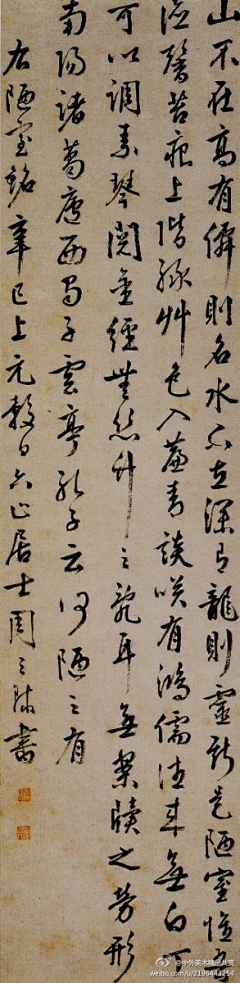 山不在高有僊則名水不在深有龍則靈斯是陋室惟吾
德馨苔痕上階緑艸色入簾青談咲有鴻儒往来無白丁
可以調素琴閲金經無絲竹之亂耳無案牘之勞形
南陽諸葛廬西蜀子雲亭孔子云何陋之有
右陋室銘辛巳上元穀日居士周之書
@中外美术精品共赏
weibo.com/u/2196441214